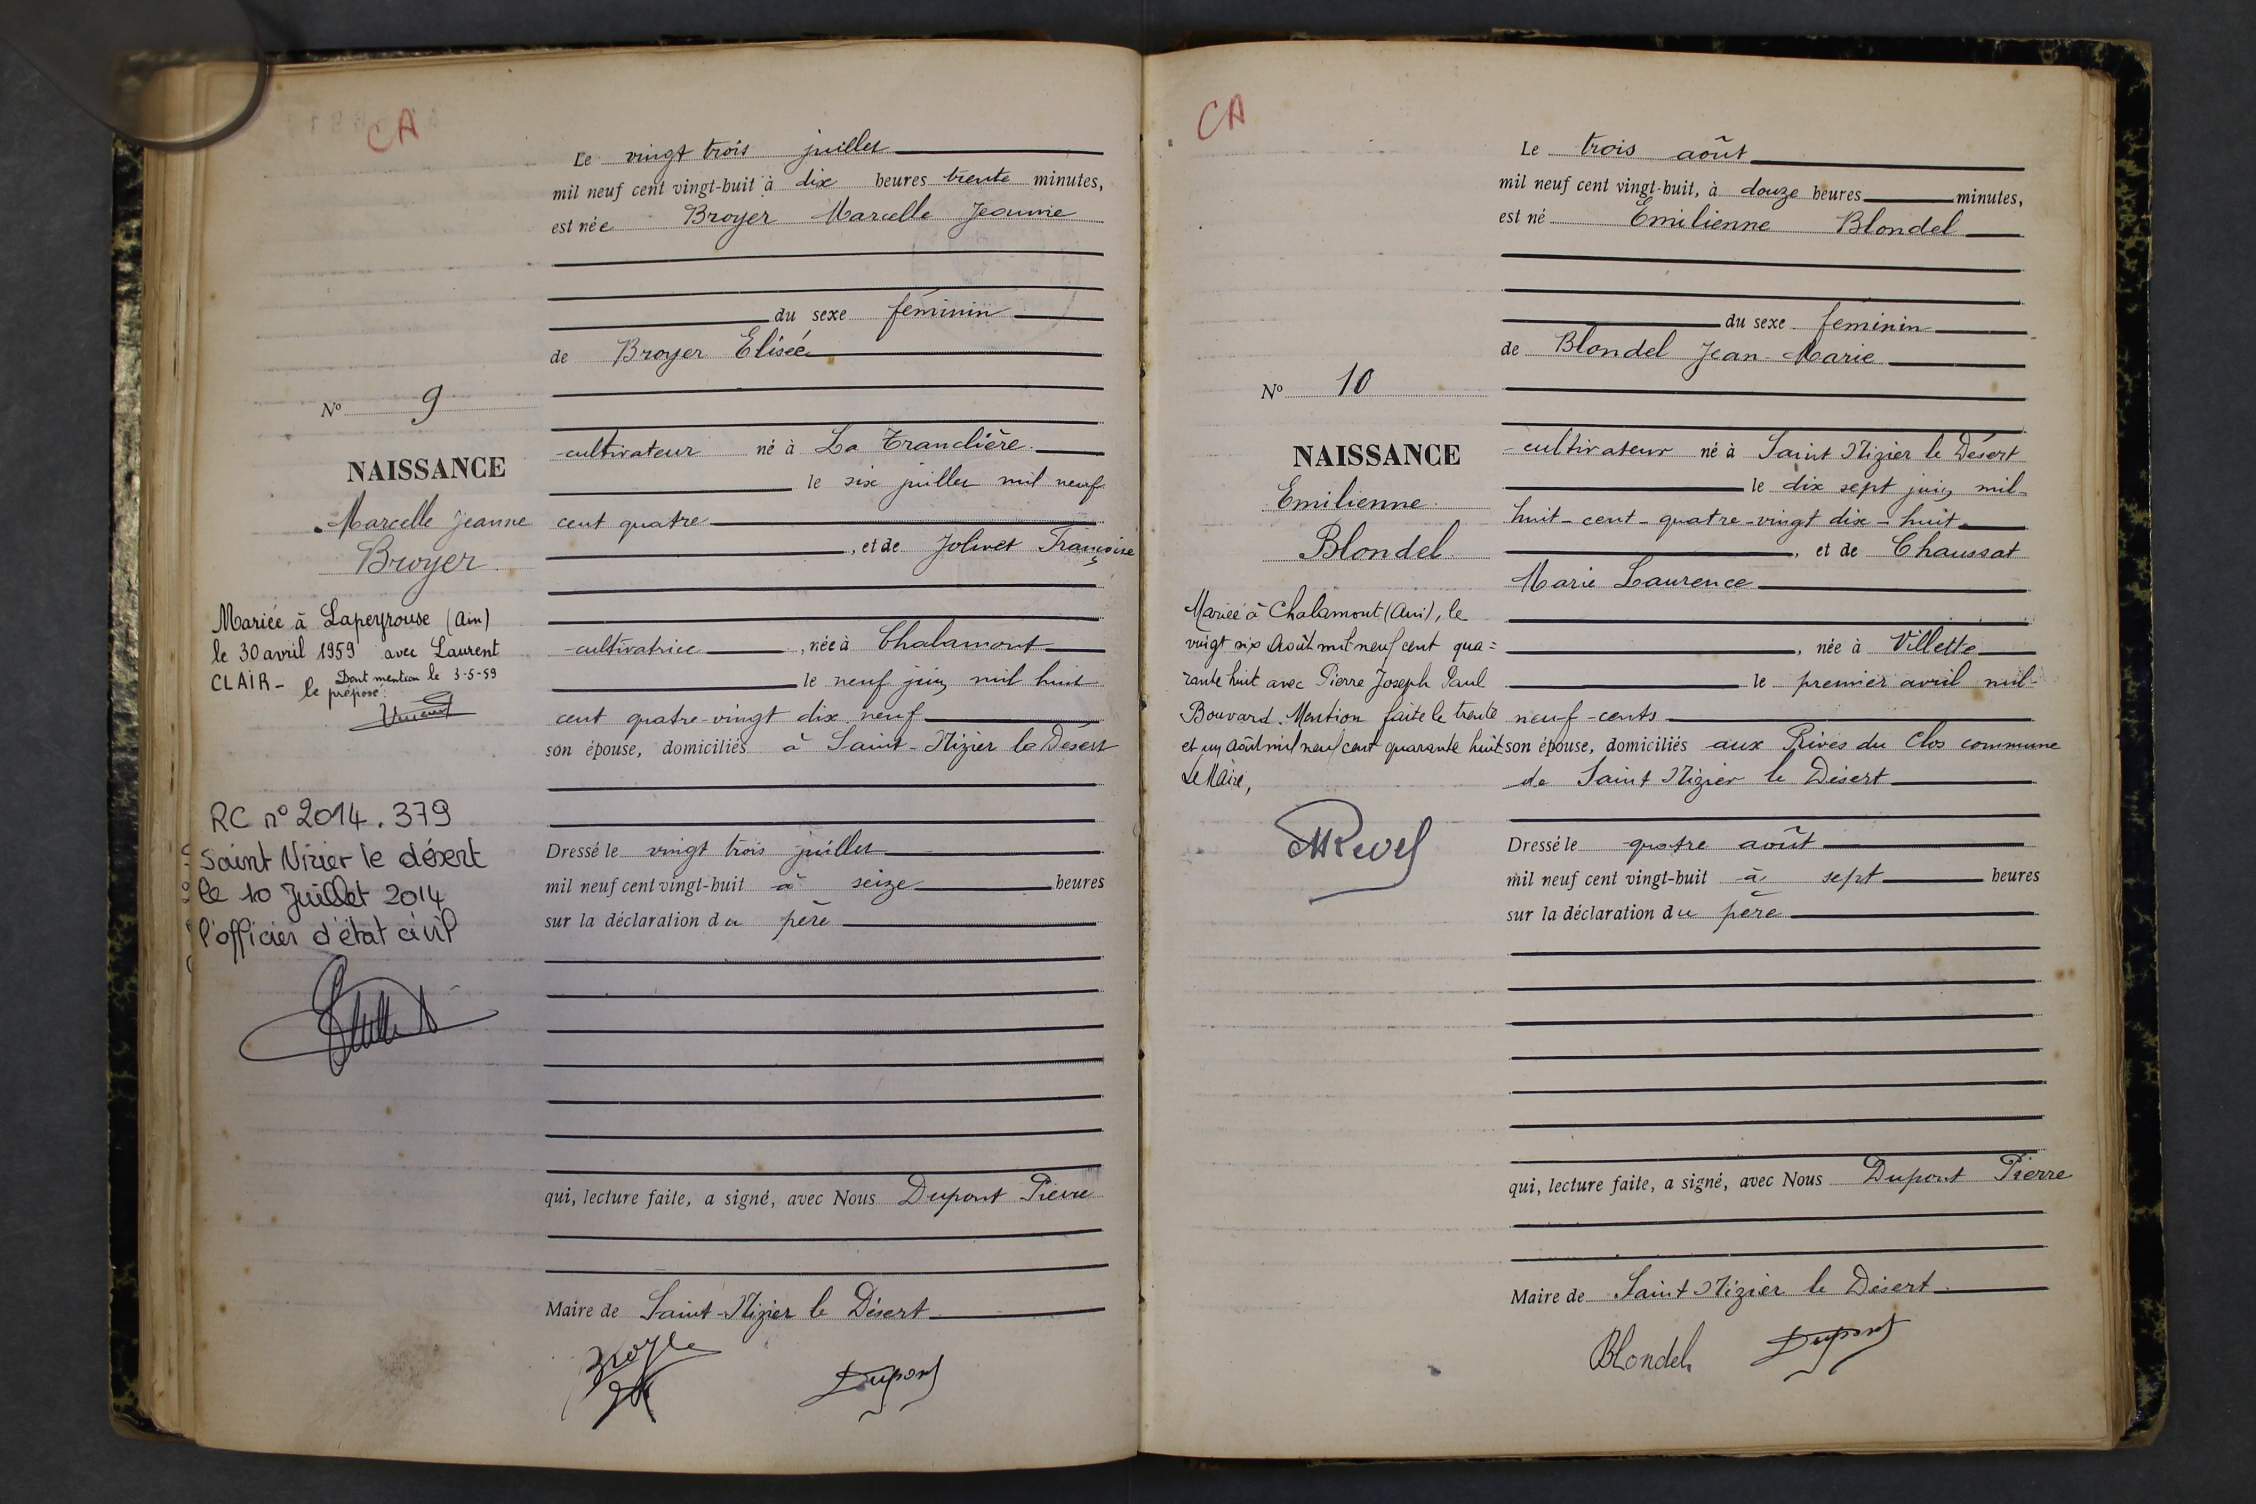 CA
Le vingt trois juillet
mil neuf cent vingt-huit à dix heures trente minutes,
est née Broyer Marcelle Jeanne
du sexe féminin
de Broyer Elisée
N° 9
NAISSANCE
Marcelle Jeanne
Broyer
cultivateur né à La Tranclière
le six juillet mil neuf
cent quatre
, et de Jolivet Françoise
Mariée à Lapeyrouse (Ain)
le 30 avril 1959 avec Laurent
CLAIR - Dont mention le 3-5-59
le préposé:
cultivatrice , née à Chalamont
le neuf juin mil huit
cent quatre-vingt dix neuf
son épouse, domiciliés à Saint-Nizier le Désert
RC n° 2014.379
Saint Nizier le désert
le 10 Juillet 2014
l'officier d'état civil
Dressé le vingt trois juillet
mil neuf cent vingt-huit à seize heures
sur la déclaration du père
qui, lecture faite, a signé, avec Nous Dupont Pierre
Maire de Saint-Nizier le Désert
Dupont
CA
Le trois août
mil neuf cent vingt-huit, à douze heures minutes,
est né Emilienne Blondel
du sexe féminin
de Blondel Jean-Marie
N° 10
NAISSANCE
Emilienne
Blondel
cultivateur né à Saint Nizier le Désert
le dix sept juin mil
huit-cent-quatre-vingt dix-huit
, et de Chaussat
Marie Laurence
Mariée à Chalamont (Ain), le
vingt six Août mil neuf cent qua=
rante huit avec Pierre Joseph Paul
Bouvard. Mention faite le trente
et un Août mil neuf cent quarante huit
Le Maire,
MRevel
, née à Villette
le premier avril mil-
neuf-cents
son épouse, domiciliés aux Rives du Clos commune
de Saint Nizier le Désert
Dressé le quatre août
mil neuf cent vingt-huit à sept heures
sur la déclaration du père
qui, lecture faite, a signé, avec Nous Dupont Pierre
Maire de Saint Nizier le Désert
Blondel Dupont